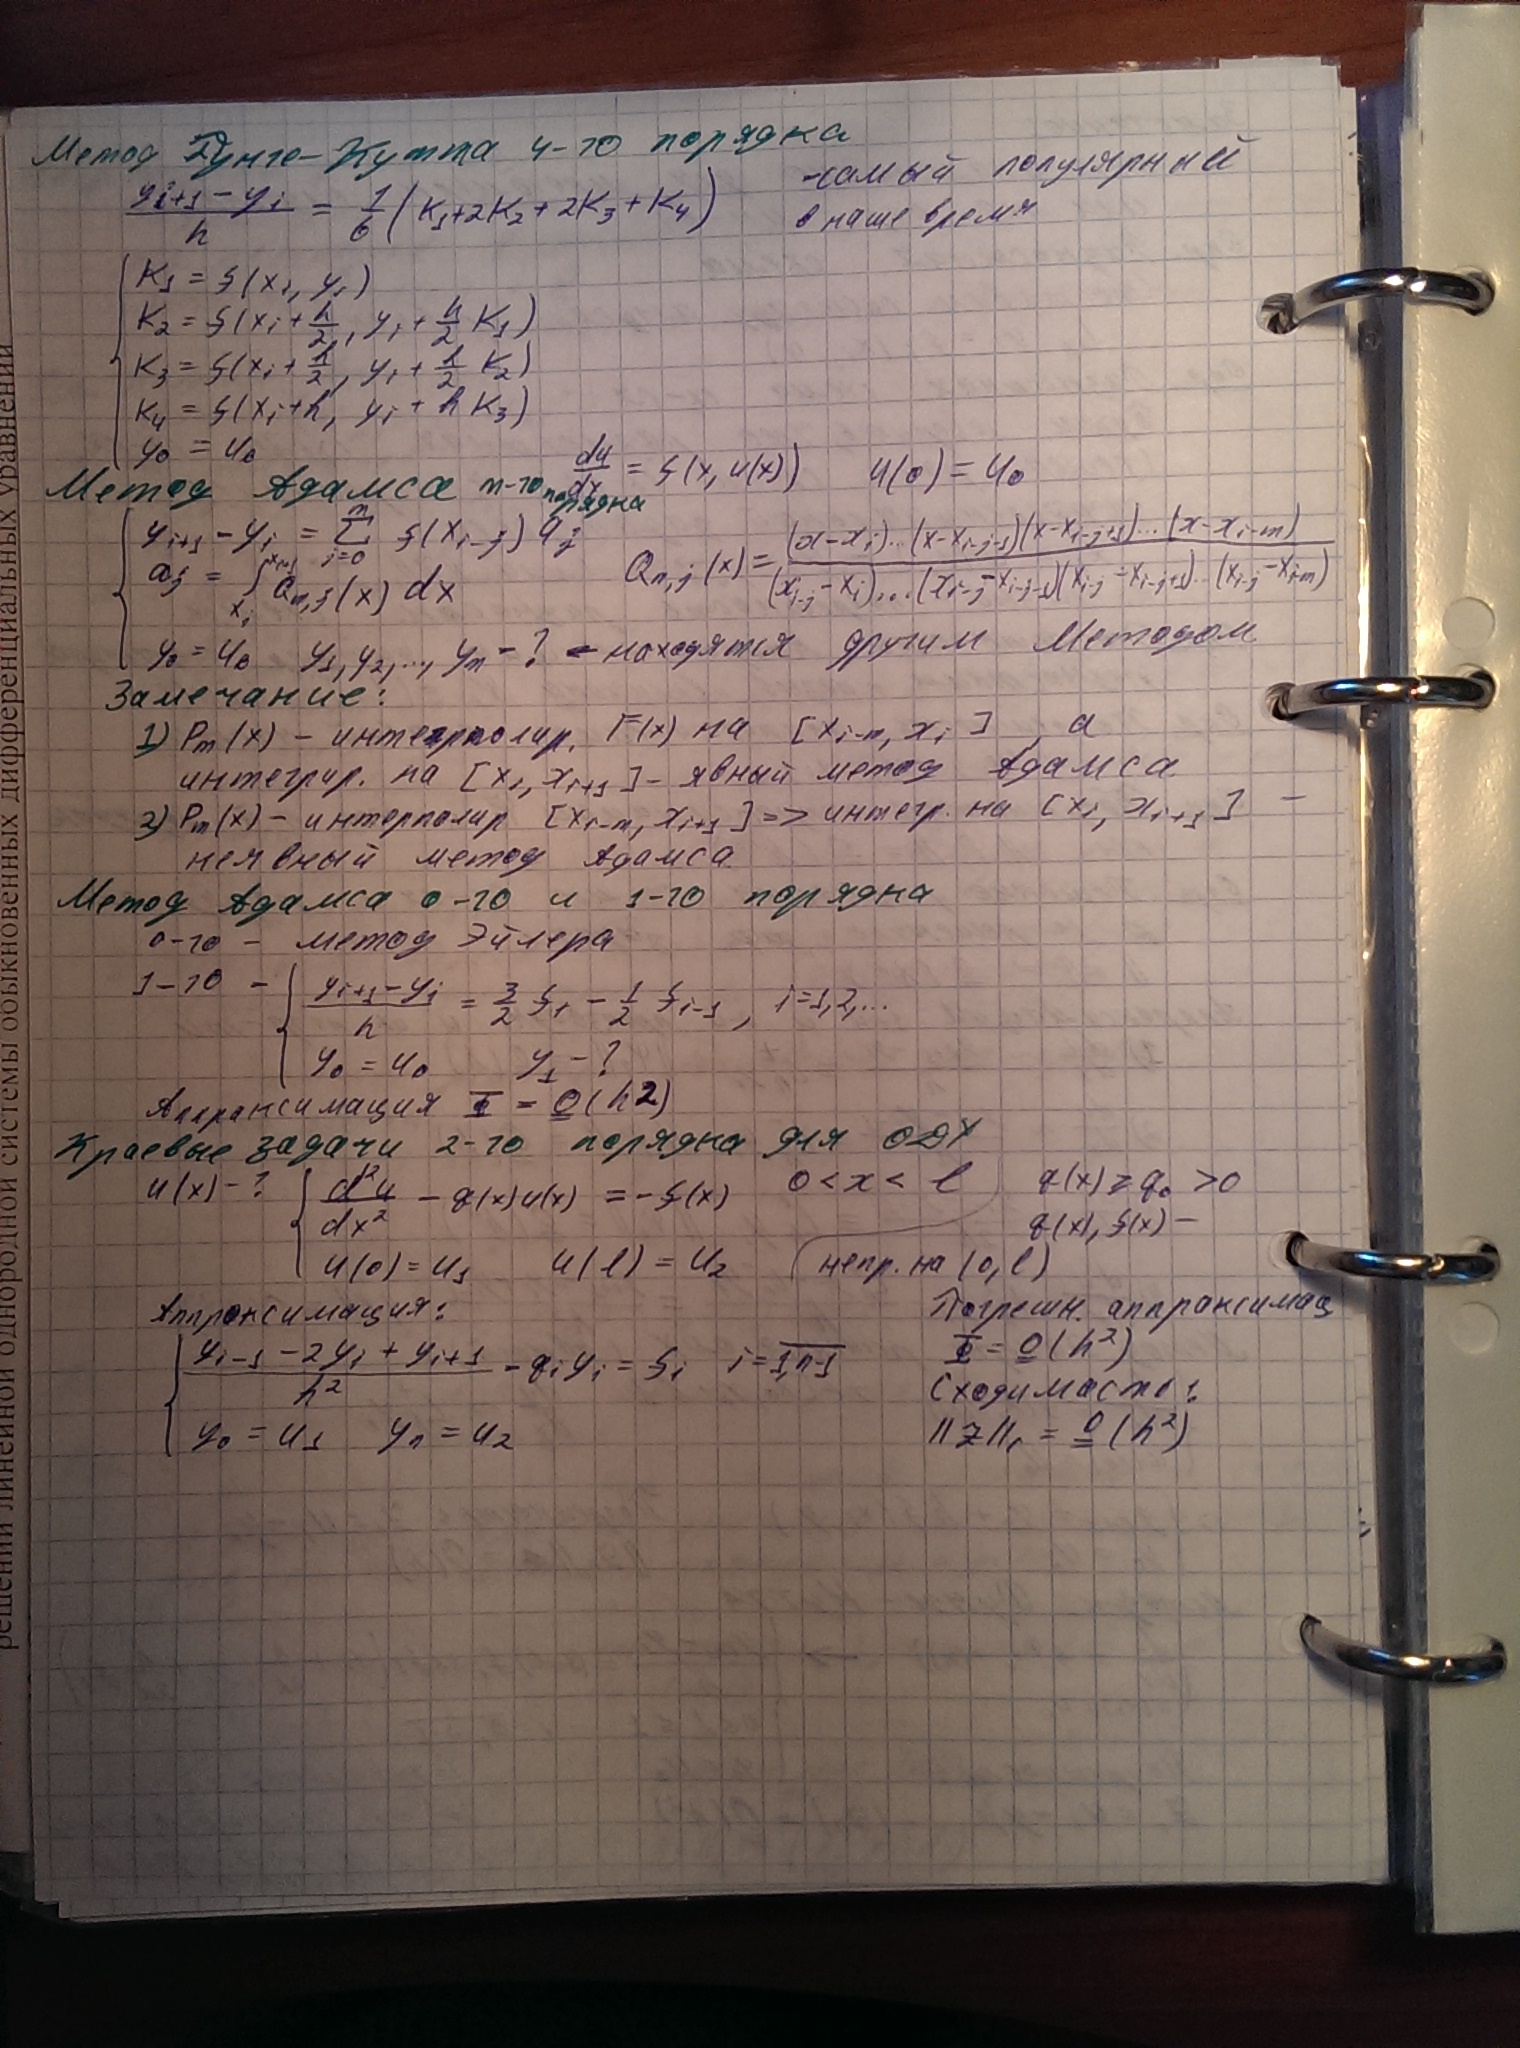 Метод Рунге-Кутта 4-го порядка
(y_{i+1} - y_i)/h = 1/6 (K₁+2K₂+2K₃+K₄)
-самый популярный
в наше время
K₁ = f(x_i, y_i)
K₂ = f(x_i + h/2, y_i + h/2 K₁)
K₃ = f(x_i + h/2, y_i + h/2 K₂)
K₄ = f(x_i + h, y_i + h K₃)
y₀ = u₀
Метод Адамса m-го порядка
du/dx = f(x, u(x)) u(0) = u₀
y_{i+1} - y_i = ∑_{j=0}^{m} f(x_{i-j}) a_j
a_j = ∫_{x_i}^{x_{i+1}} Q_{m,j}(x) dx
Q_{m,j}(x) = (x-x_i)...(x-x_{i-j-1})(x-x_{i-j+1})...(x-x_{i-m}) / (x_{i-j}-x_i)...(x_{i-j}-x_{i-j-1})(x_{i-j}-x_{i-j+1})...(x_{i-j}-x_{i-m})
y₀ = u₀ y₁, y₂, ..., y_m - ? - находятся другим методом
Замечание:
1) P_m(x) - интерполир. F(x) на [x_{i-m}, x_i], а
интегрир. на [x_i, x_{i+1}] - явный метод Адамса
2) P_m(x) - интерполир [x_{i-m}, x_{i+1}] => интегр. на [x_i, x_{i+1}] -
неявный метод Адамса
Метод Адамса 0-го и 1-го порядка
0-го - метод Эйлера
1-го - (y_{i+1} - y_i)/h = 3/2 f_i - 1/2 f_{i-1}, i=1,2,...
y₀ = u₀ y₁ - ?
Аппраксимация Ψ = O(h2)
Краевые задачи 2-го порядка для ОДУ
u(x) - ? d²u/dx² - q(x)u(x) = -f(x) 0 < x < l q(x) ≥ q₀ > 0
q(x), f(x) -
u(0) = u₁ u(l) = u₂ непр. на (0, l)
Аппроксимация:
(y_{i-1} - 2y_i + y_{i+1})/h² - q_i y_i = f_i i = 1,n-1
y₀ = u₁ y_n = u₂
Погрешн. аппраксимац
Ψ = O(h²)
Сходимость:
||z||_c = O(h²)
решений линейной однородной системы обыкновенных дифференциальных уравнений